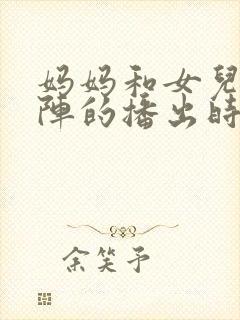 妈妈和女兒
陣的播出時
余笑予